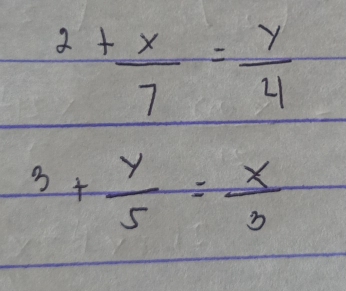 2 + x/7 = y/4
3 + y/5 = x/3